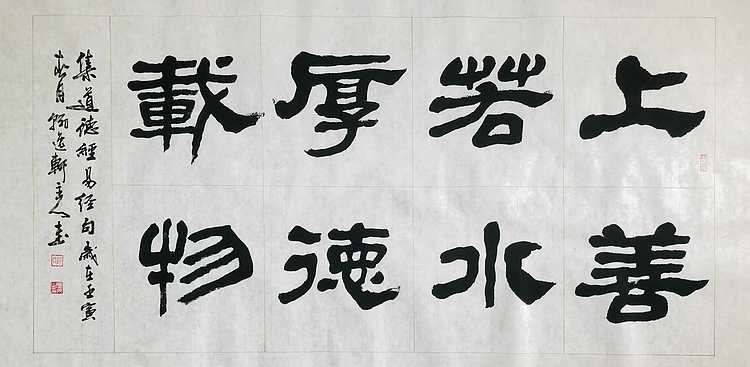 上善
若水
厚德
載物
集道德經易经句歲在壬寅
春月翰逸軒主人書